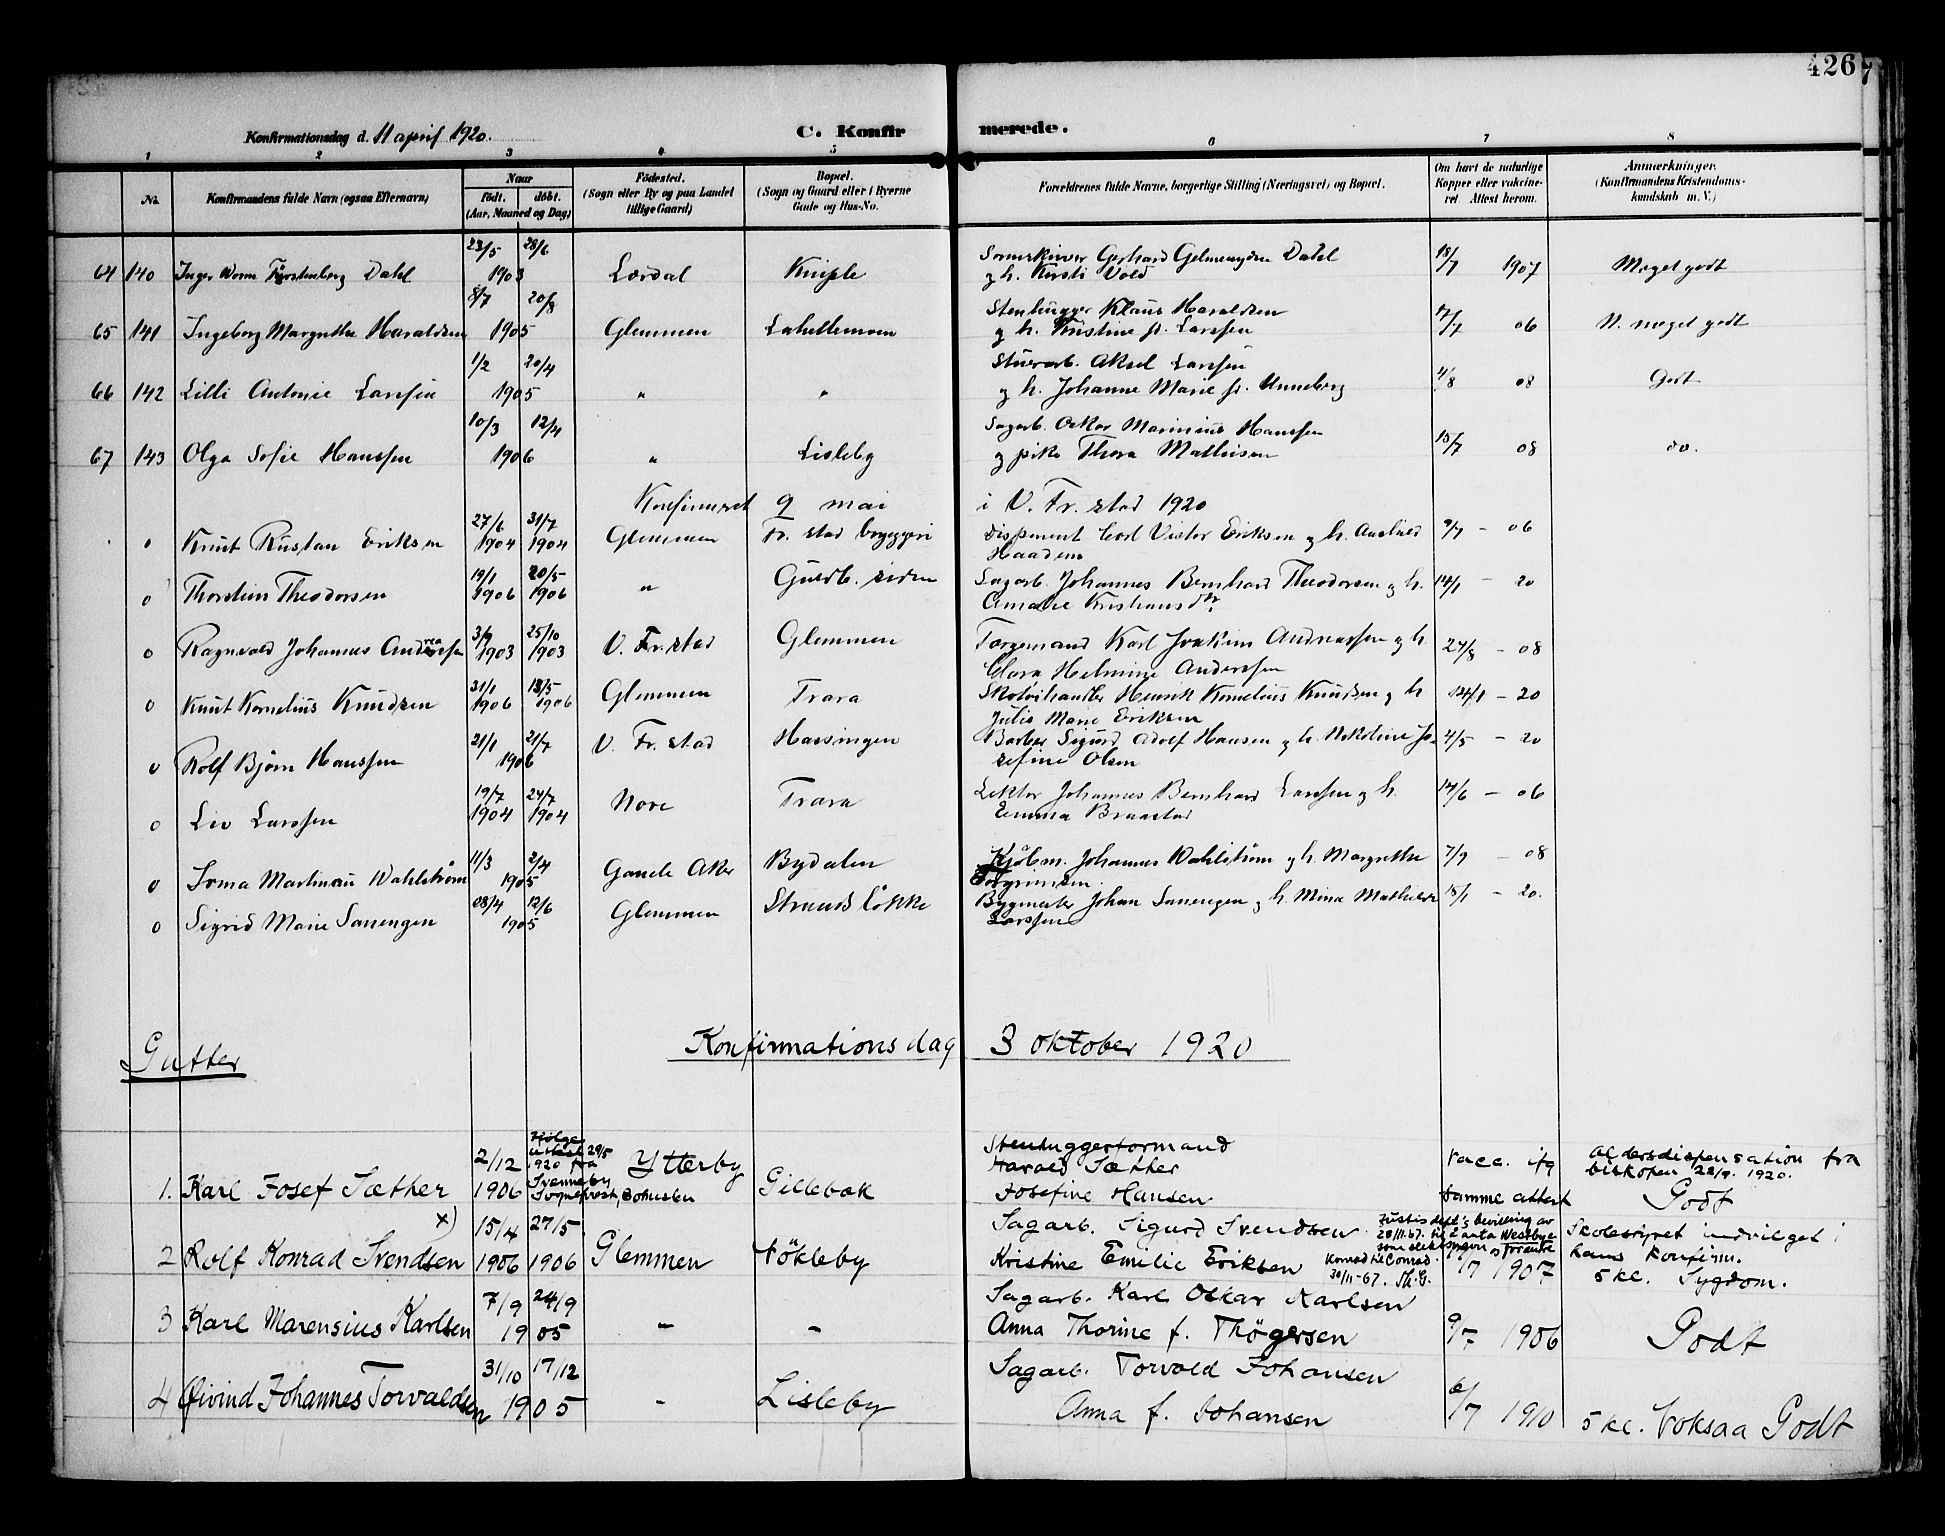 4267
Konfirmationsdag d. 11 april 1920.
C. Konfirmerede.
1 2 3 4 5 6 7 8
No. Konfirmandens fulde Navn (ogsaa Efternavn) Naar födt. döbt. (Aar, Maaned og Dag) Födested. (Sogn eller By og paa Landet tillige Gaard) Bopæl. (Sogn og Gaard eller i Byerne Gade og Hus-No. Forældrenes fulde Navne, borgerlige Stilling (Næringsvei) og Bopæl. Om havt de naturlige Kopper eller vakcineret Attest herom. Anmærkninger. (Konfirmandens Kristendomskundskab m. V.)
23/5 28/6 Gerhard Dahl 18/7
64 140 Inger Dahl 1903 Lærdal Kniple g h. Kirsti Vold 1907 Meget godt
8/7 20/8 Stenhugger Klaus Haraldsen 17/7
65 141 Ingeborg Margrethe Haraldsen 1905 Glemmen Lahellemoen g h. Kristine f. Larssen 06 N. meget godt
1/2 20/4 Stuerarb. Aksel Larssen
66 142 Lilli Antonie Larssen 1905 " " g h. Johanne Marie f. Unneberg 4/8 08 Godt
10/3 12/4 Sagarb. Oskar Marinius Hanssen
67 143 Olga Sofie Hanssen 1906 " Lisleby g pike Thora Mathisen 15/7 08 do.
Konfirmeret 9 mai i V. Fr.stad 1920
27/6 31/7
o Knut Rustan Eriksen 1904 1904 Glemmen Fr. stad bryggeri Disponent Carl Victor Eriksen g h. 9/7 - 06
Haadem
19/1 20/5
o Thorstein Theodorsen 1906 1906 " Guldb. siden Sagarb. Johannes Bernhard Theodorsen g h. 14/1 - 20
Amalie Kristiansdtr.
3/9 25/10
o Ragnvald Johannes Andreassen 1903 1903 V. Fr.stad Glemmen Karl Joakim Andreassen g h. 24/8 - 08
Clara Helmine Anderssen
31/1 13/5
o Knut Kornelius Knudsen 1906 1906 Glemmen Trara Skotöihandler Henrik Kornelius Knudsen g h 14/1 - 20
Julie Marie Eriksen
21/1 21/7
o Rolf Bjørn Hanssen 1906 V. Fr. stad Hassingen Barber Sigurd Adolf Hansen g h. Nikoline Jo- 4/5 - 20
sefine Olsen
19/7 24/7
o Liv Larssen 1904 1904 Nore Trara Lektor Johannes Bernhard Larssen g h. 14/6 - 06
Emma Braastad
11/3 2/4
o Irma Wahlström 1905 Gamle Aker Bydalen Kjöbm. Johannes Wahlström g h. Margrethe 7/9 - 08
Torgrimsen.
08/4 12/6
o Sigrid Marie Sanengen 1905 Glemmen Strandlökke Bygmester Johan Sanengen g h. Mina Mathilde 15/1 - 20.
Larssen
Gutter Konfirmationsdag 3 oktober 1920
2/12 ifølge attest 29/5 1920 fra Svenneby Sogneprest, Bohuslen Ytterby Stenhuggerformand Harald Sæther vacc. ifg Aldersdispensation fra biskopen 22/9. 1920.
1. Karl Josef Sæther 1906 Gillebæk Josefine Hansen samme attest Godt
x) 15/4 27/5. Sagarb. Sigurd Svendsen Justisdept's bevilling av 20/11.67. til å anta Westbye som slektsnavn og forandre Konrad til Conrad. 30/11-67. Th.G. Skolestyret indvilget i hans konfirm.
2 Rolf Konrad Svendsen 1906 1906 Glemmen Nökleby Kristine Emilie Eriksen /7 1907 5 kl. Sygdom.
7/9 24/9 Sagarb. Karl Oskar Karlsen
3 Karl Marensius Karlsen 1905 - - Anna Thorine f. Thögersen 9/7 1906 Godt
31/10 17/12 Sagarb. Torvald Johansen
4 Øivind Johannes Torvaldsen 1905 - Lisleby Anna f. Johansen 6/7 1910 5 kl. Voksaa Godt